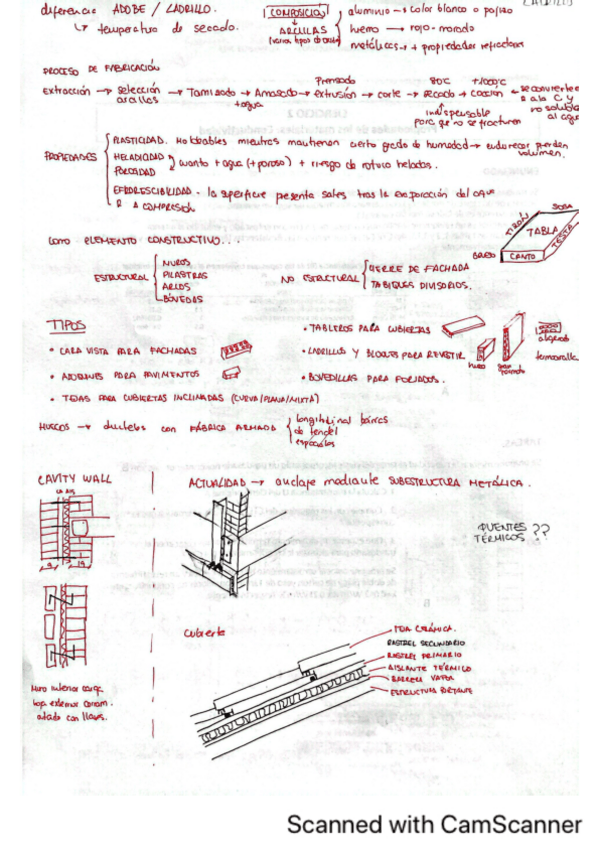 LADRILLO
diferencia ADOBE / LADRILLO.
↳ temperatura de secado.
COMPOSICIÓN
↓
ARCILLAS
(varios tipos de óxido)
aluminio → color blanco o pajizo
hierro → rojo-morado
metálicas → + propiedades refractarias
PROCESO DE FABRICACIÓN
Extracción → selección arcillas → Tamizado → Amasado → extrusión → corte → secado → cocción → se convierte
+agua
Prensado
80ºC
+1000ºC
a la C y
no soluble
al agua
indispensable
para que no se fracturen
PROPIEDADES
PLASTICIDAD. Moldeables mientras mantienen cierto grado de humedad → endurecer pierden
volumen.
HELADICIDAD
POROSIDAD
cuanto + agua (+ poroso) + riesgo de rotura heladas.
EFLORESCIBILIDAD - la superficie presenta sales tras la evaporación del agua
R A COMPRESIÓN
como ELEMENTO CONSTRUCTIVO...
ESTRUCTURAL
MUROS
PILASTRAS
ARCOS
BÓVEDAS
NO ESTRUCTURAL
CIERRE DE FACHADA
TABIQUES DIVISORIOS.
SOGA
TIZÓN
TABLA
TESTA
CANTO
TIPOS
• CARA VISTA PARA FACHADAS
• ADOQUINES PARA PAVIMENTOS
• TEJAS PARA CUBIERTAS INCLINADAS (CURVA/PLANA/MIXTA)
• TABLEROS PARA CUBIERTAS
• LADRILLOS Y BLOQUES PARA REVESTIR
• BOVEDILLAS PARA FORJADOS.
hueco
gran formato
termoarcilla
HUECOS → dinteles con FÁBRICA ARMADA
longitudinal barras
de tendel
especiales
CAVITY WALL
Muro interior carga
hoja exterior cerram.
atado con llaves.
ACTUALIDAD → anclaje mediante SUBESTRUCTURA METÁLICA.
PUENTES
TÉRMICOS ??
Cubierta
TEJA CERÁMICA.
RASTREL SECUNDARIO
RASTREL PRIMARIO
AISLANTE TÉRMICO
BARRERA VAPOR
ESTRUCTURA PORTANTE
Scanned with CamScanner